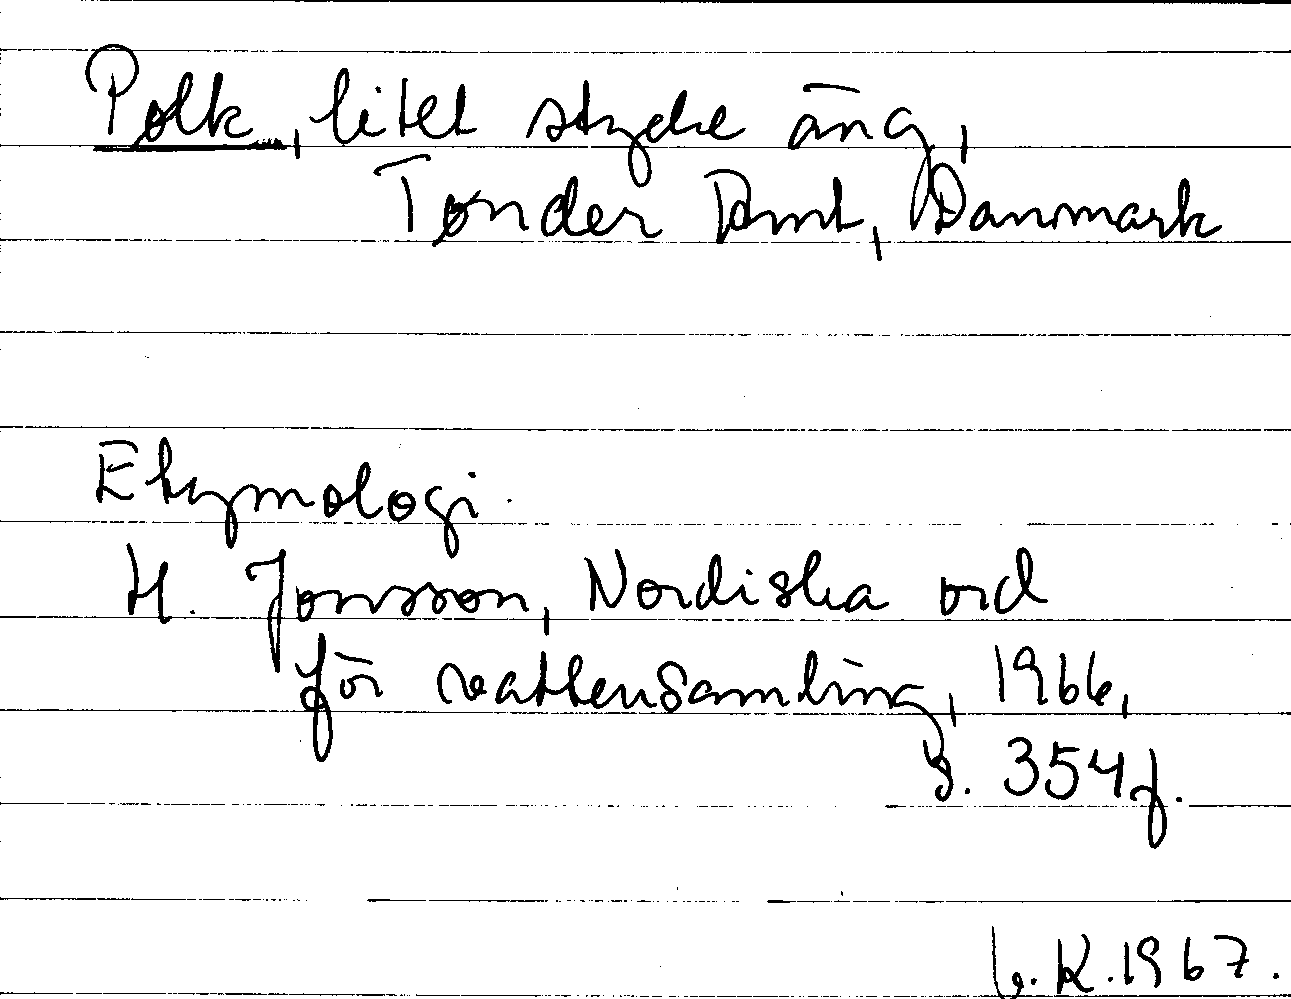 Polk, litet stycke äng,
Tønder Amt, Danmark
Etymologi.
H. Jonsson, Nordiska ord
för vattensamling, 1966,
s. 354f.
K. 1967.